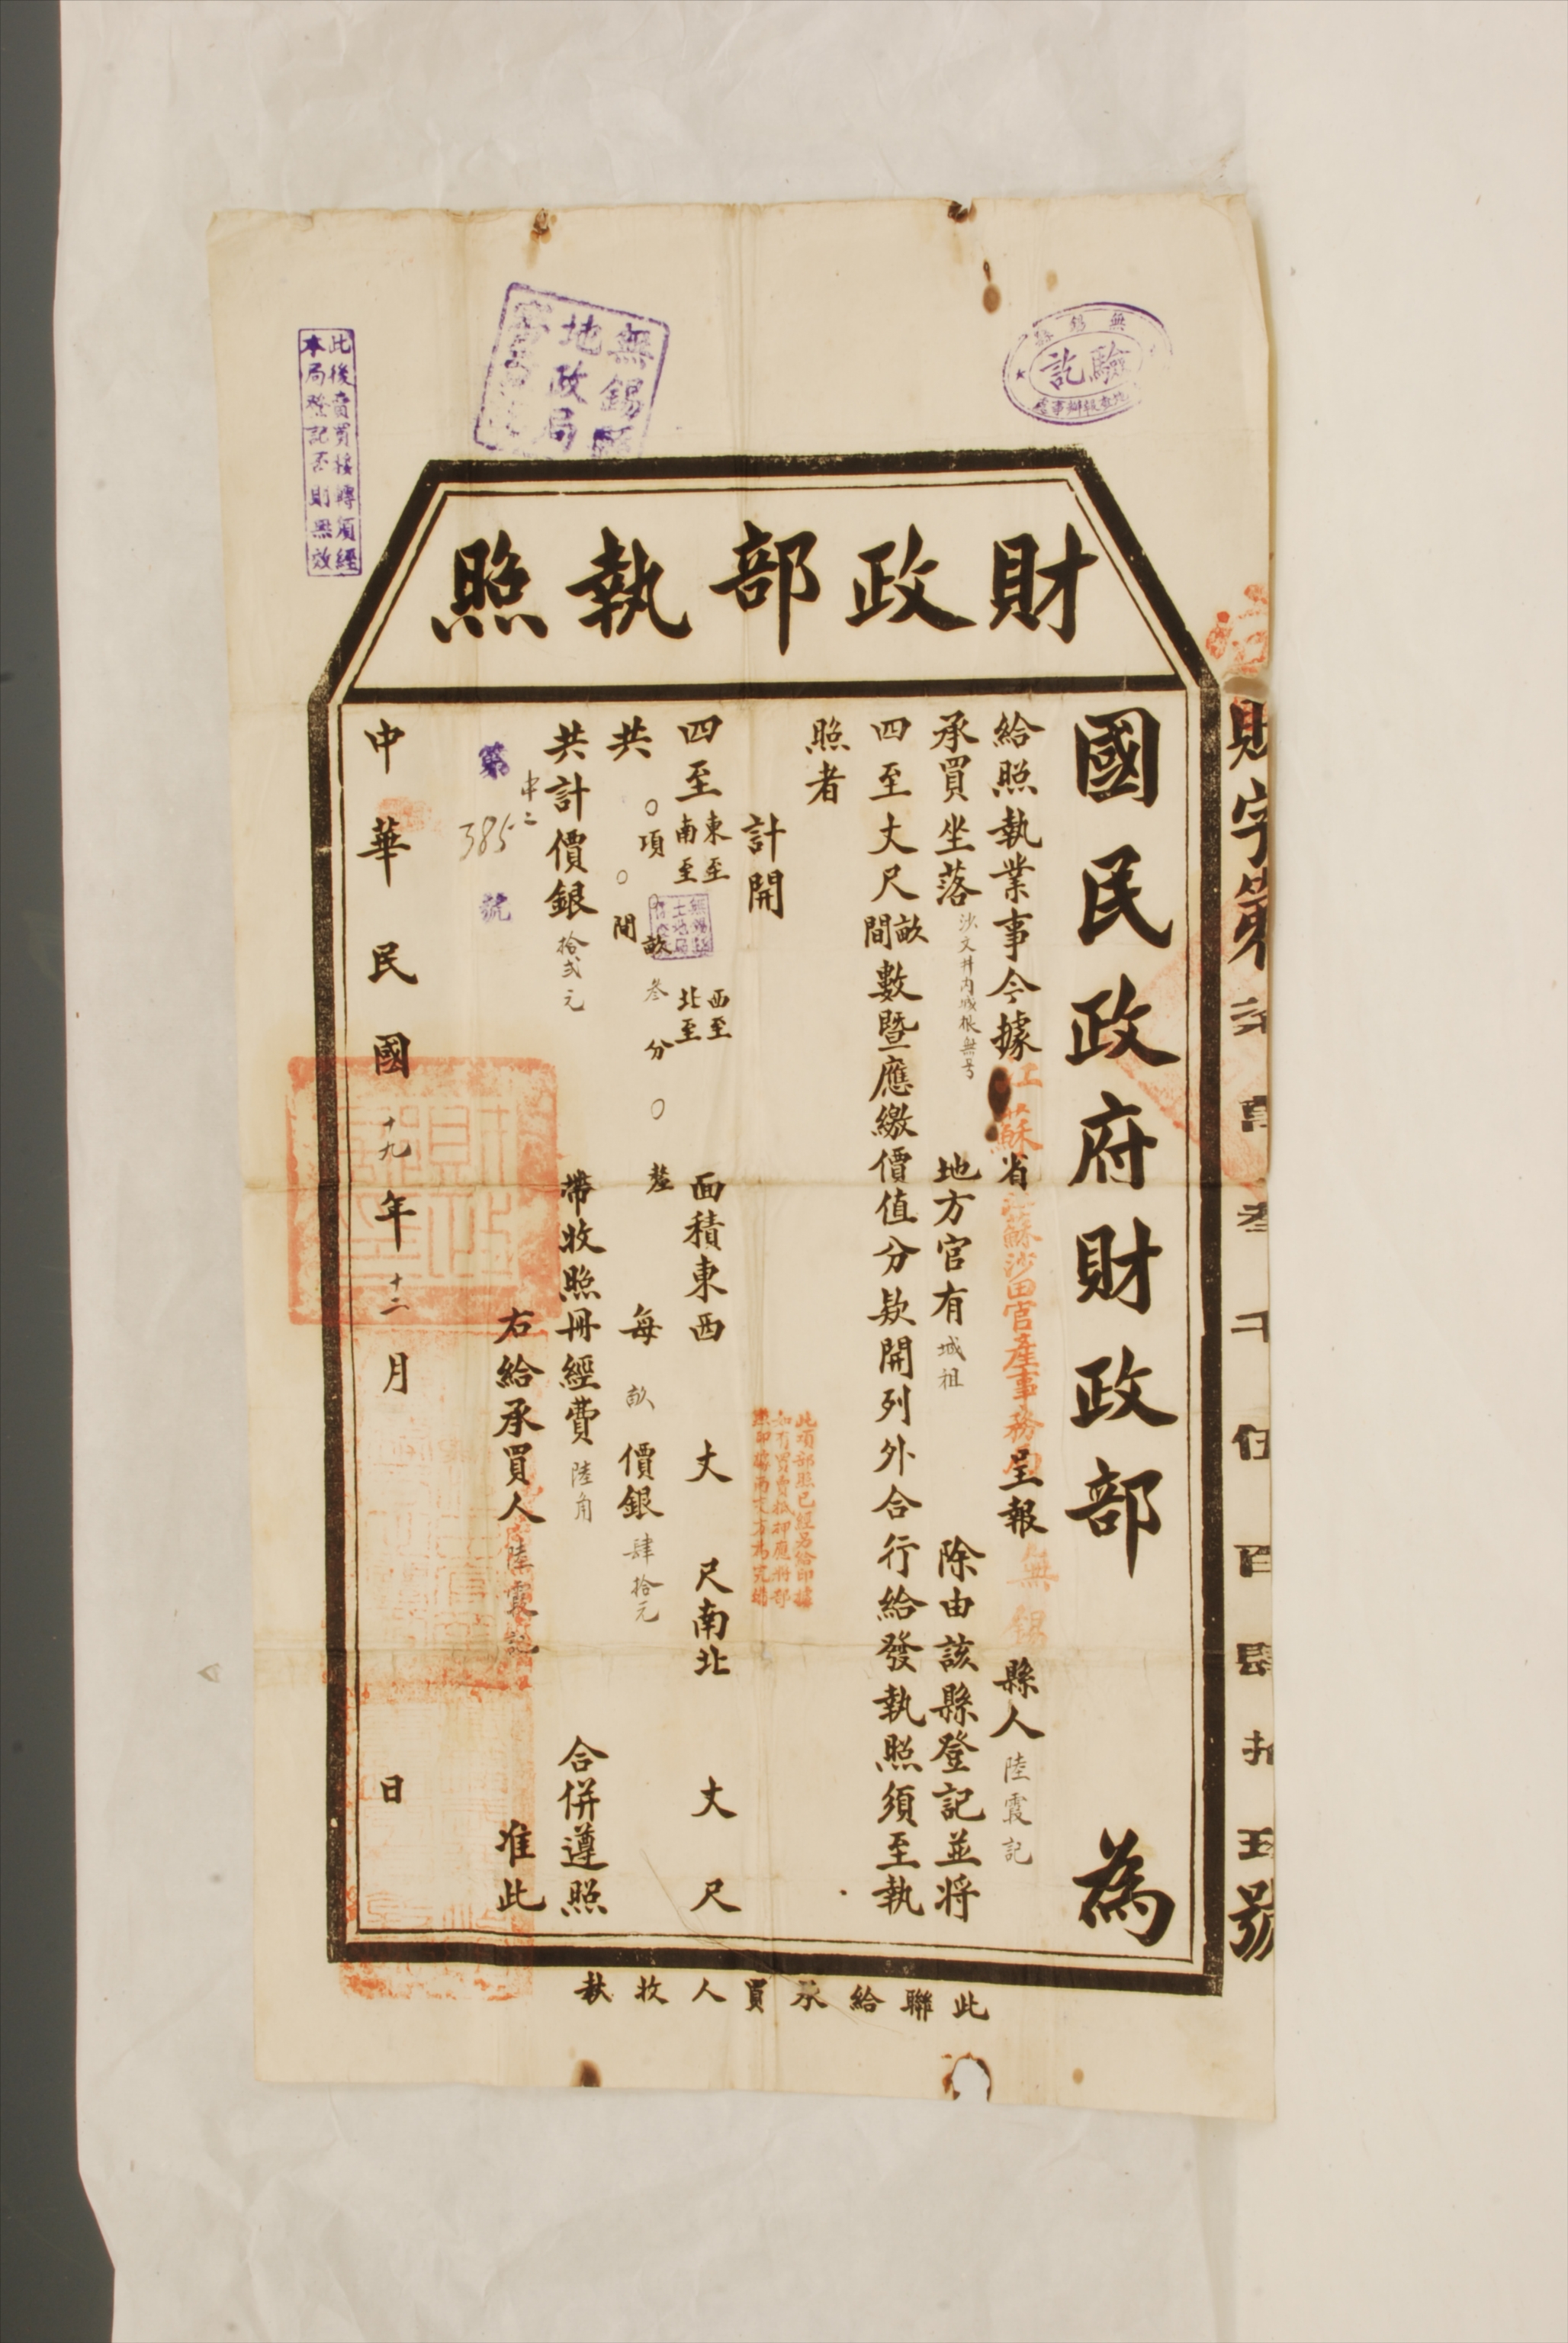 無錫縣
驗訖
無錫縣
地政局
此後賣買移轉須經
本局登記否則無效
財政部執照
國民政府財政部 為
給照執業事今據江蘇省江蘇沙田官產事務局呈報無錫縣人陸霞記
承買坐落沙文井內城根無号 地方官有城祖 除由該縣登記並將
四至丈尺畝間數暨應繳價值分款開列外合行給發執照須至執
照者
計開
此項部照已經另給印據
如有買賣抵押應將部
照印據兩交方為完備
四至東至 西至 面積東西 丈 尺南北 丈 尺
南至 北至
共 〇項 〇畝叁分〇釐 每畝價銀肆拾元
〇間
共計價銀拾弍元 帶收照冊經費陸角 合併遵照
右給承買人陸霞記 准此
第 385 號
申二
中華民國十九年十二月 日
此聯給承買人收執
財字第 叁千伍百肆拾伍號